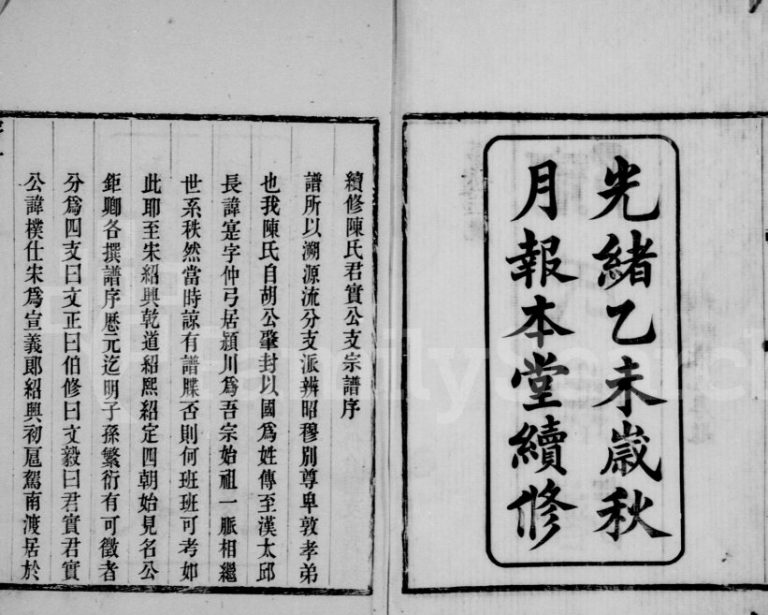 光緒乙未歲秋
月報本堂續修
續修陳氏君實公支宗譜序
譜所以溯源流分支派辨昭穆別尊卑敦孝弟
也我陳氏自胡公肇封以國爲姓傳至漢太邱
長諱寔字仲弓居潁川爲吾宗始祖一脈相繼
世系秩然當時諒有譜牒否則何班班可考如
此耶至宋紹興乾道紹熙紹定四朝始見名公
鉅卿各撰譜序歷元迄明子孫繁衍有可徵者
分爲四支曰文正曰伯修曰文毅曰君實君實
公諱樸仕宋爲宣義郎紹興初扈駕南渡居於
FamilySearch